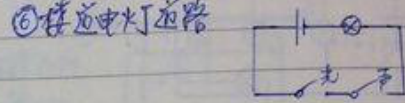 ⑥楼道电灯道路
光 声